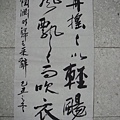 舟搖搖以輕颺
風飄飄而吹衣
陶淵明歸去來辭